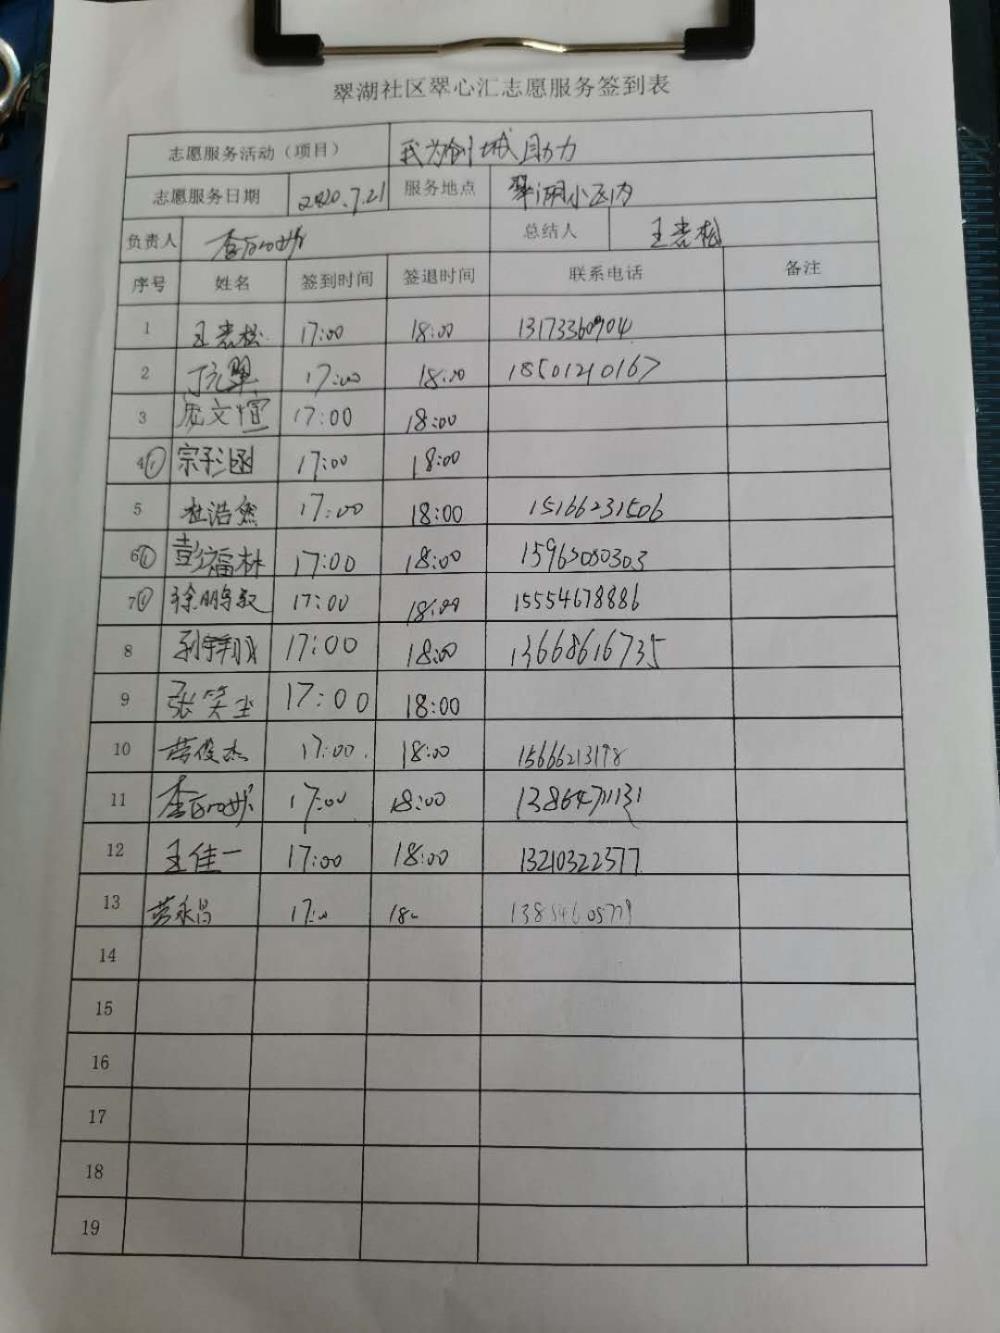 翠湖社区翠心汇志愿服务签到表
志愿服务活动（项目） 我为创城助力
志愿服务日期 2020.7.21 服务地点 翠湖小区内
负责人 总结人 王岩松
序号 姓名 签到时间 签退时间 联系电话 备注
1 王岩松 17:00 18:00 13173360904
2 17:00 18:00 18501210167
3 17:00 18:00
4① 宗彤涵 17:00 18:00
5 杜浩然 17:00 18:00 15166231506
6① 彭福林 17:00 18:00
7① 徐鹏毅 17:00 18:00 15554678886
8 17:00 18:00 13668616735
9 张笑尘 17:00 18:00
10 俊杰 17:00 18:00
11 17:00 18:00
12 王佳一 17:00 18:00 13210322377
13 永昌
14
15
16
17
18
19